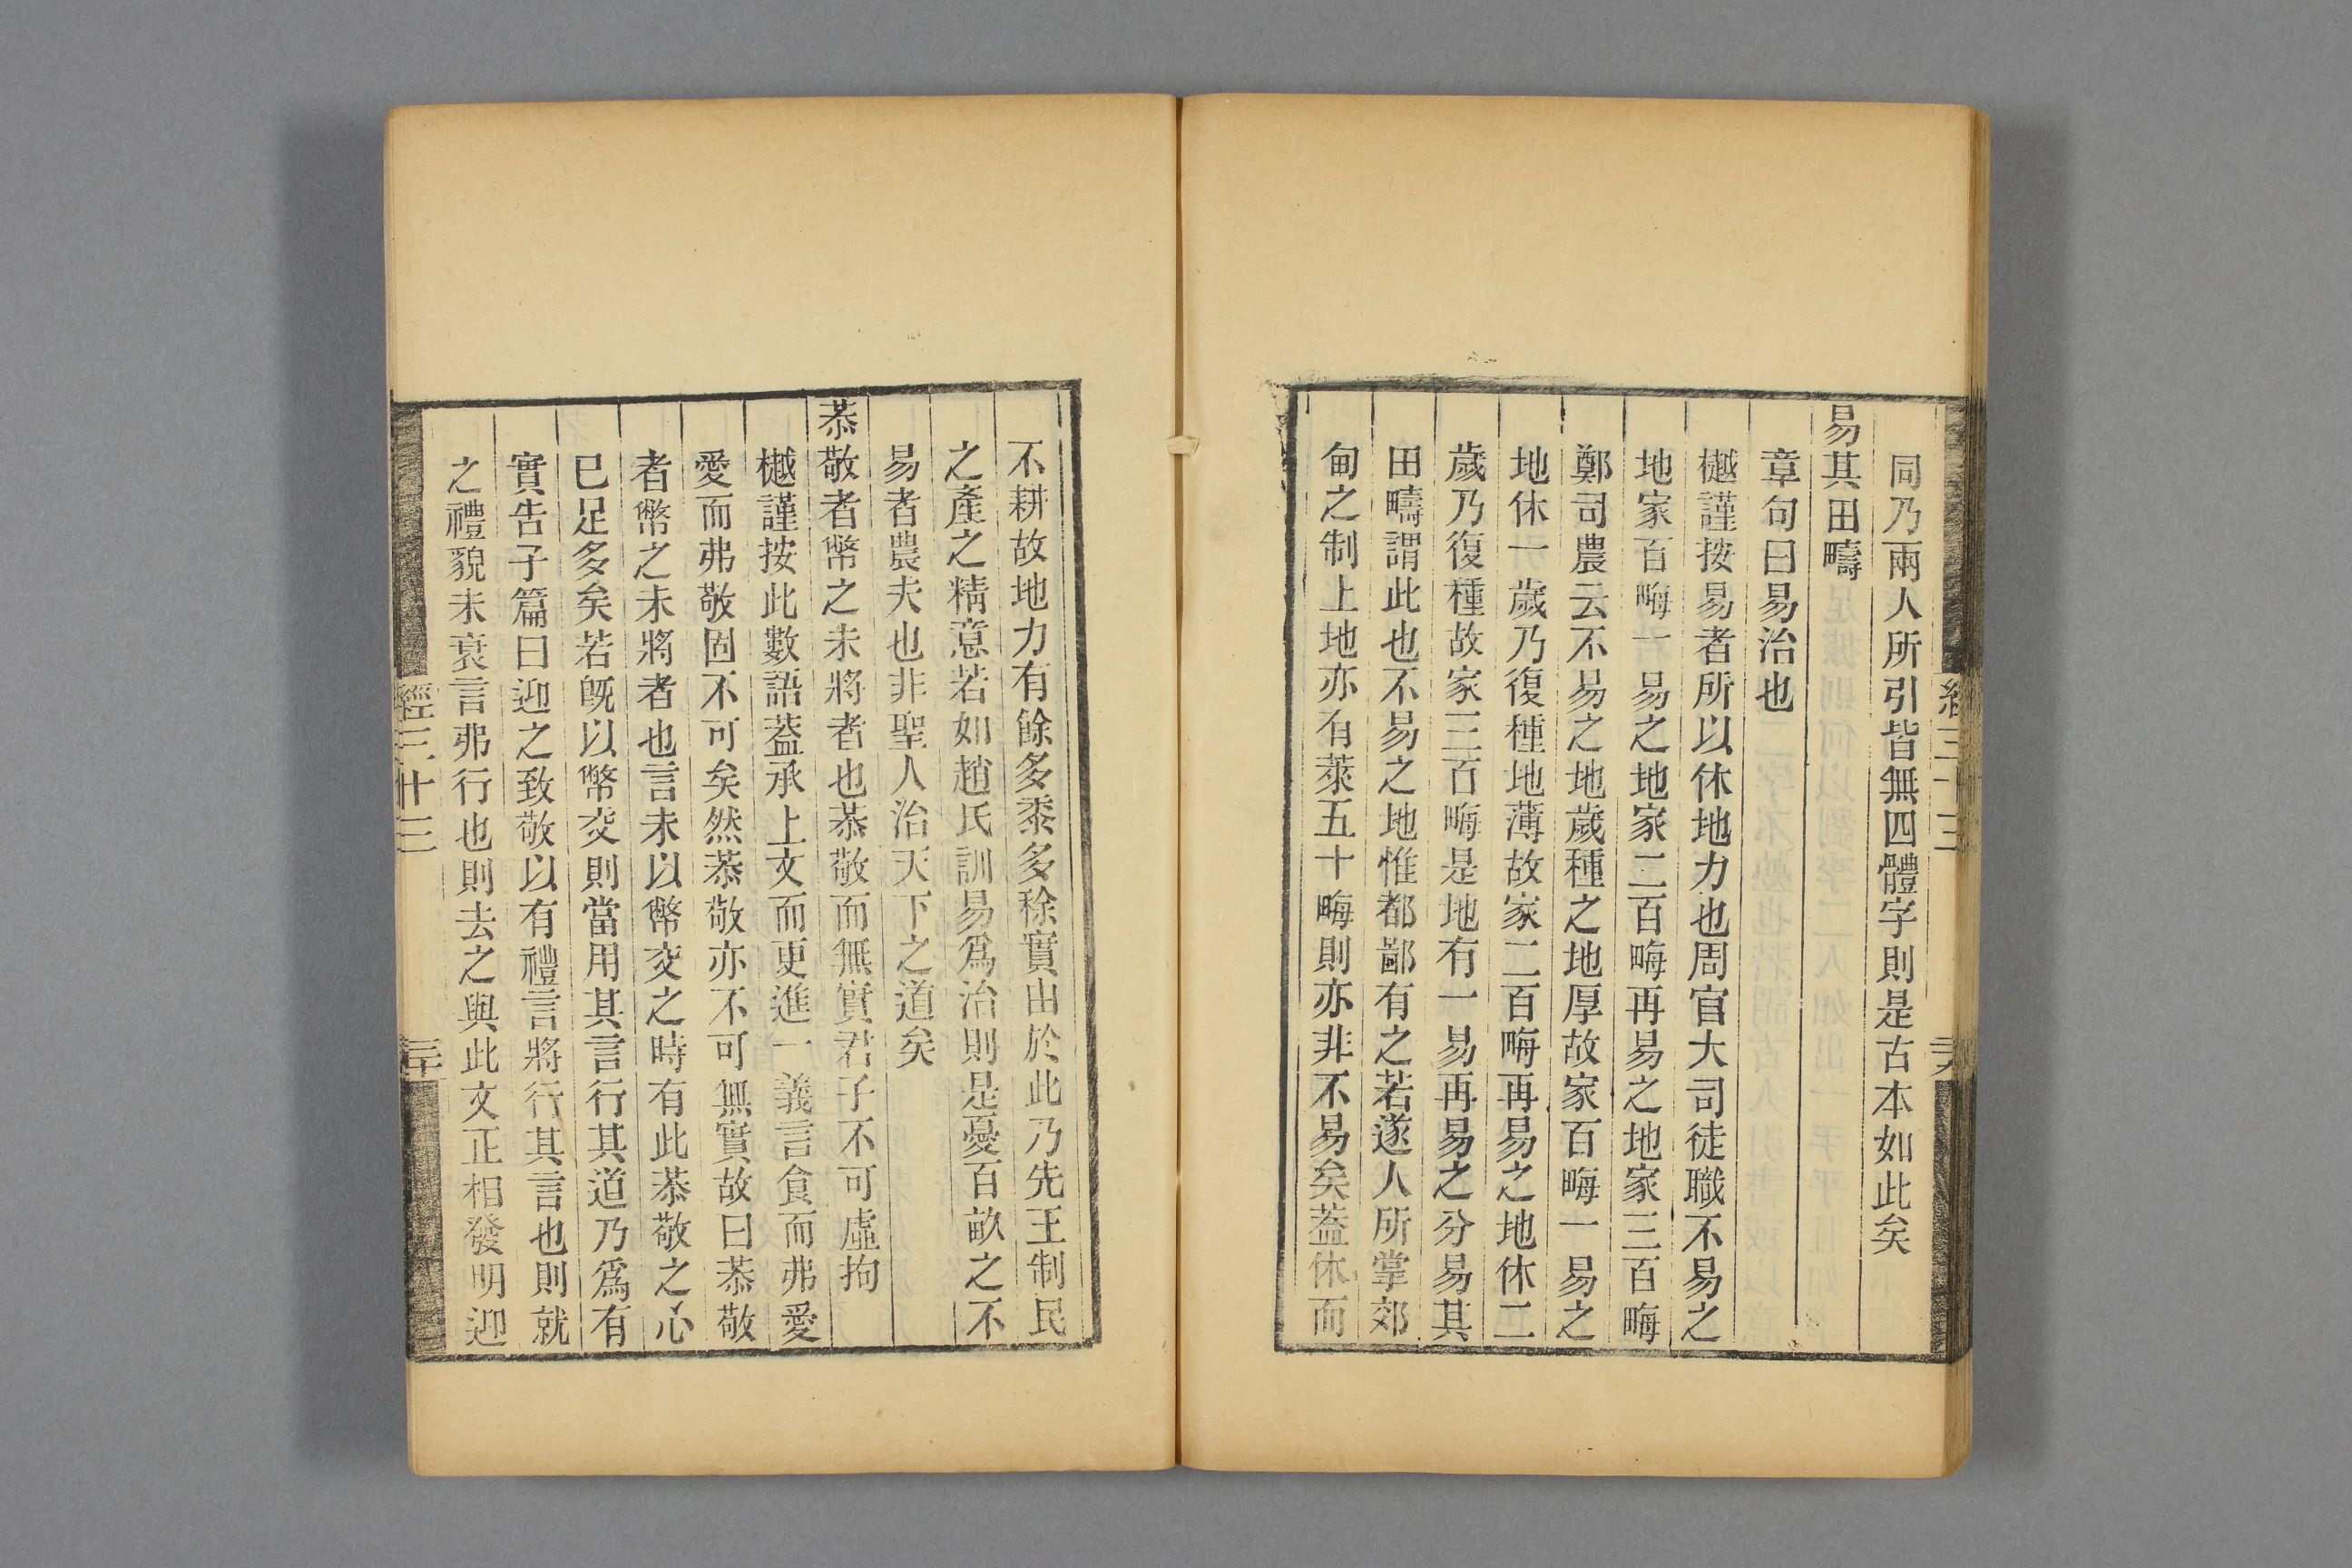 同乃兩人所引皆無四體字則是古本如此矣
易其田疇
章句曰易治也
樾謹按易者所以休地力也周官大司徒職不易之
地家百晦一易之地家二百晦再易之地家三百晦
鄭司農云不易之地歲種之地厚故家百晦一易之
地休一歲乃復種地薄故家二百晦再易之地休二
歲乃復種故家三百晦是地有一易再易之分易其
田疇謂此也不易之地惟都鄙有之若遂人所掌郊
甸之制上地亦有萊五十晦則亦非不易矣葢休而
不耕故地力有餘多黍多稌實由於此乃先王制民
之產之精意若如趙氏訓易爲治則是憂百畝之不
易者農夫也非聖人治天下之道矣
恭敬者幣之未將者也恭敬而無實君子不可虛拘
樾謹按此數語葢承上文而更進一義言食而弗愛
愛而弗敬固不可矣然恭敬亦不可無實故曰恭敬
者幣之未將者也言未以幣交之時有此恭敬之心
已足多矣若旣以幣交則當用其言行其道乃爲有
實告子篇曰迎之致敬以有禮言將行其言也則就
之禮貌未衰言弗行也則去之與此文正相發明迎
經三十三
三十